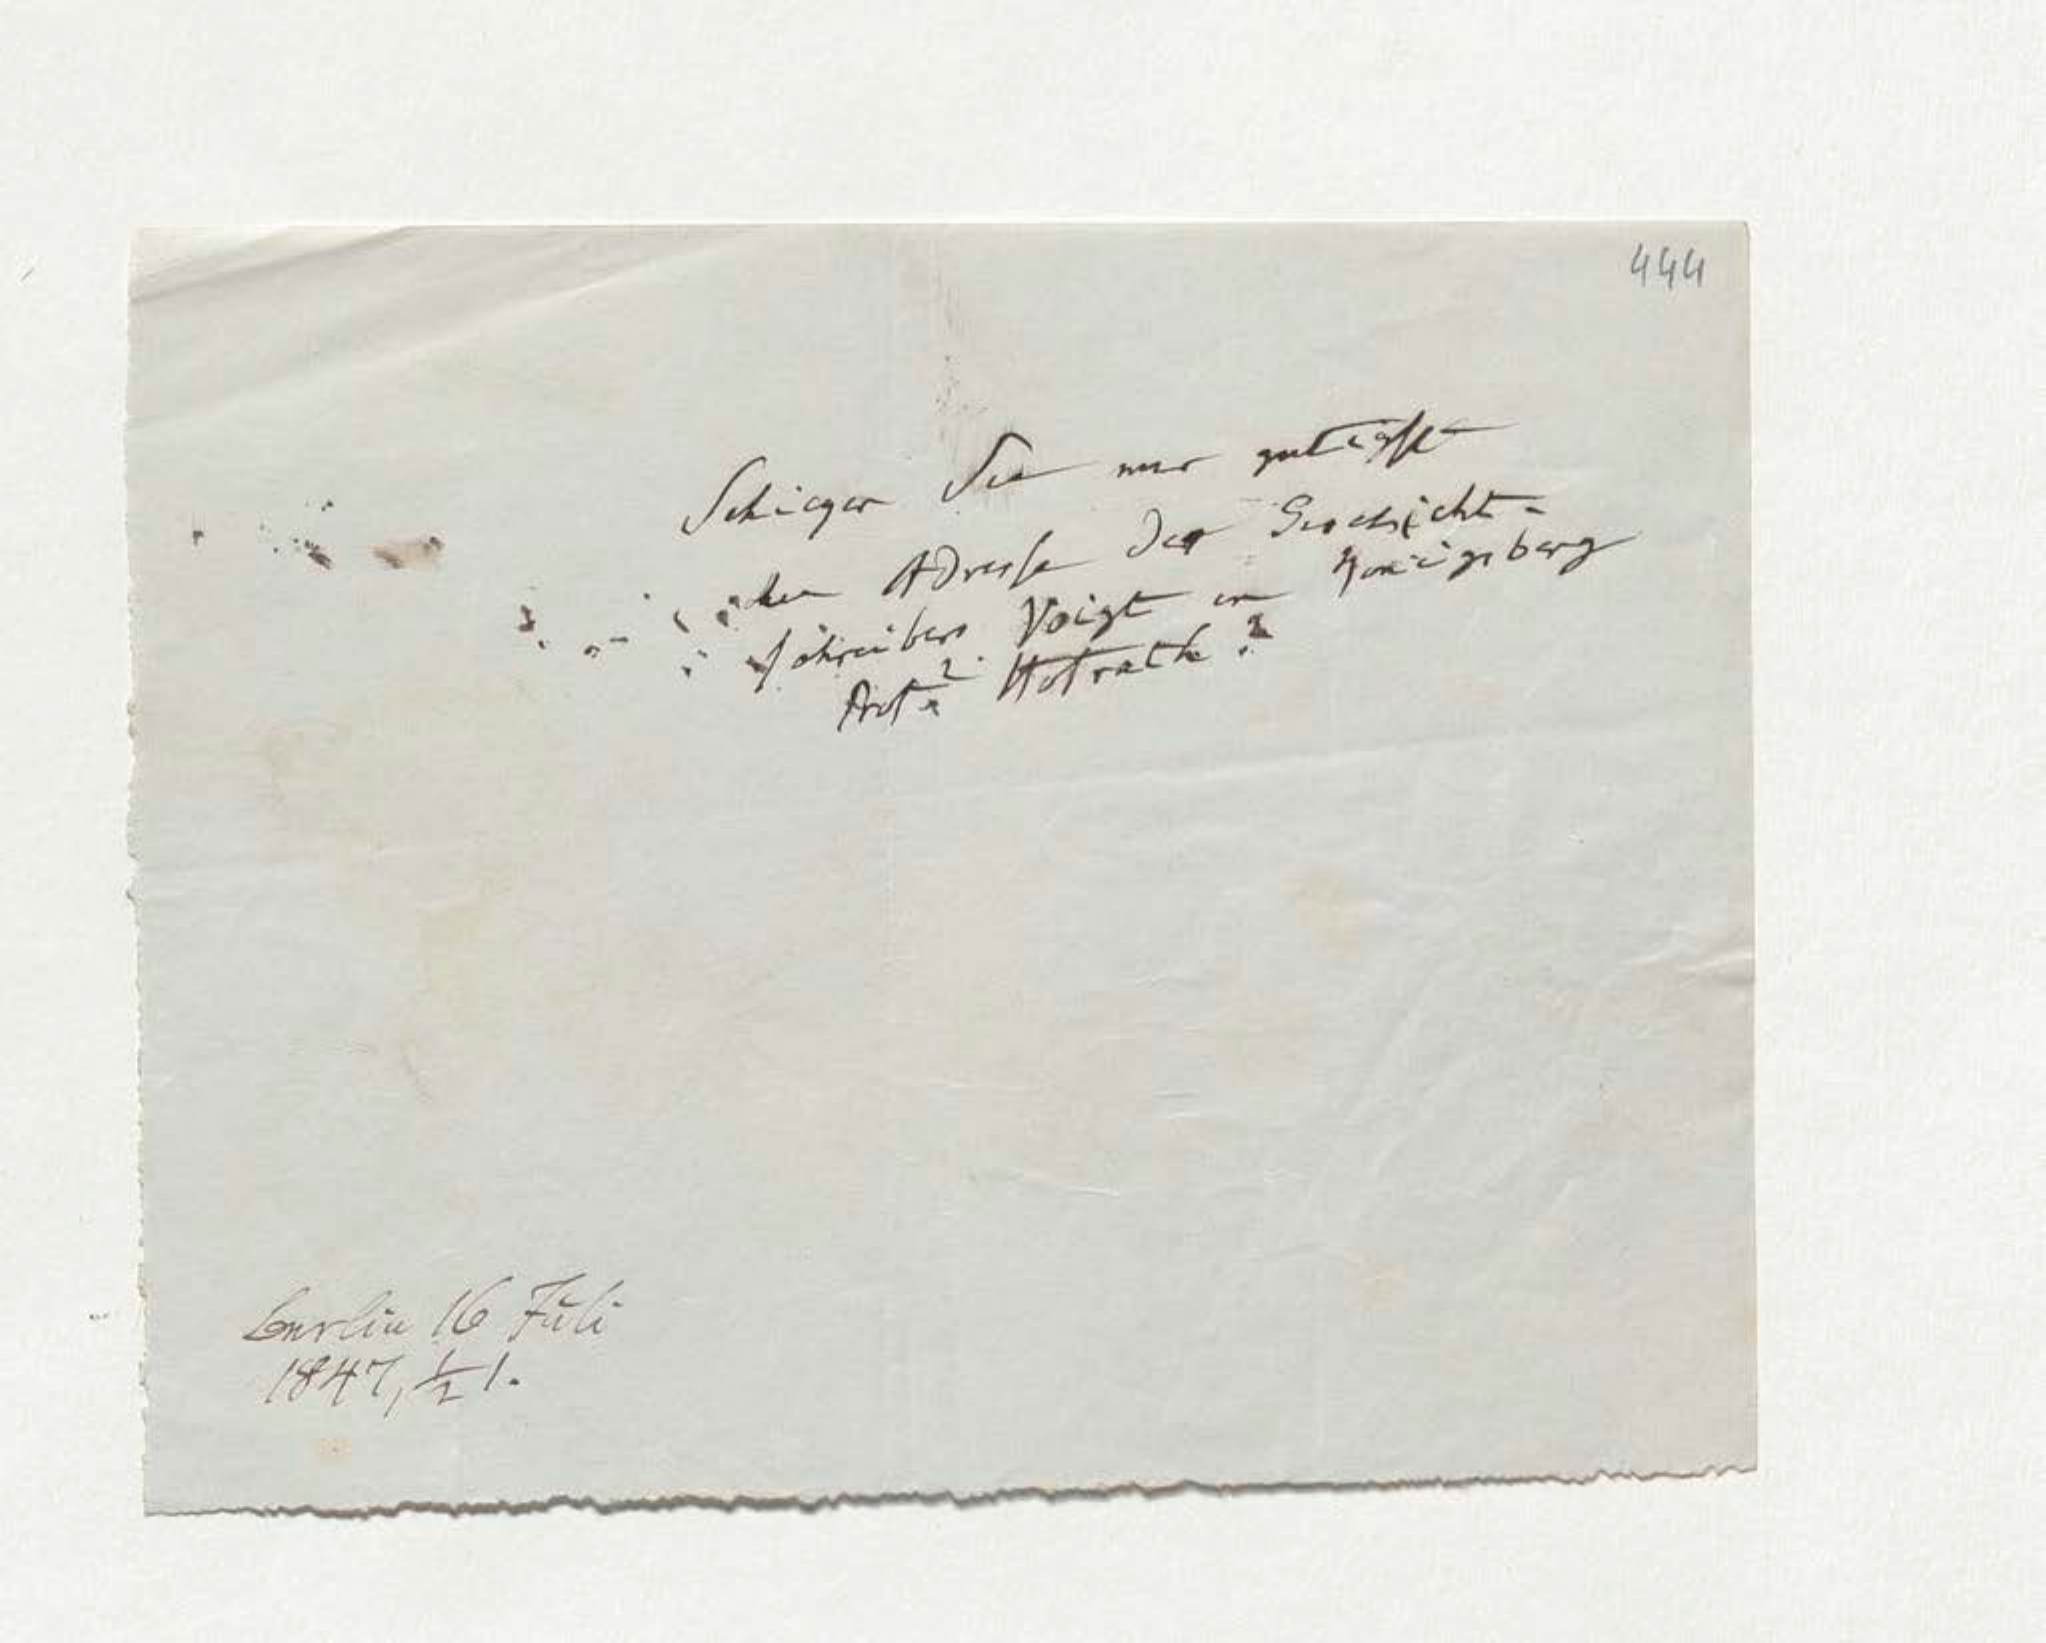 444
Sie mir gütigst
die Adresse des Geschicht-
schreibers Voigt in Königsberg
Prof? Hofrath?
Berlin 16 Juli
1847, ½ 1.